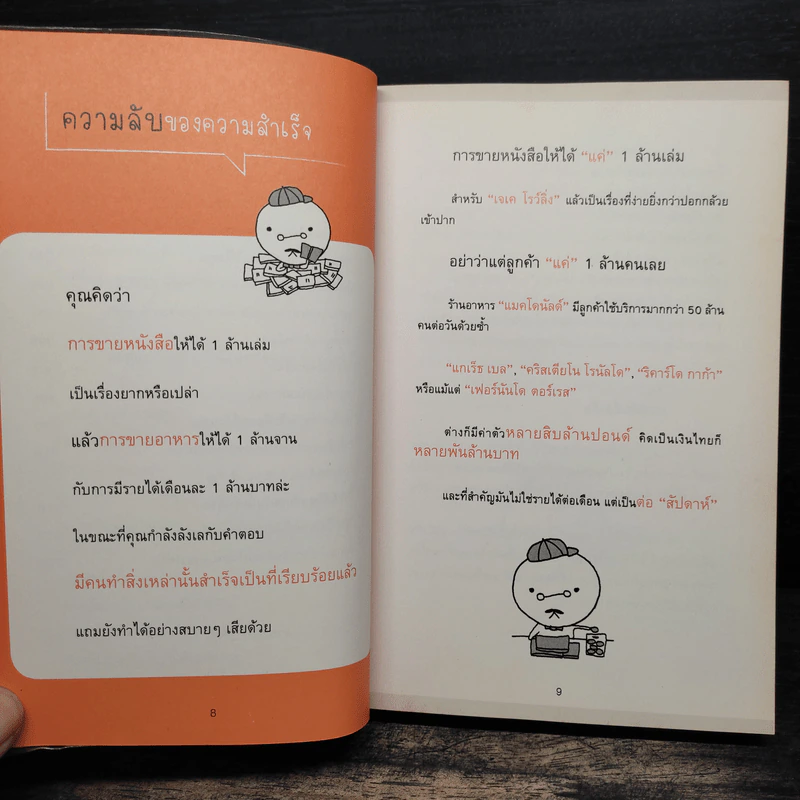 ความลับของความสำเร็จ
คุณคิดว่า
การขายหนังสือให้ได้ 1 ล้านเล่ม
เป็นเรื่องยากหรือเปล่า
แล้วการขายอาหารให้ได้ 1 ล้านจาน
กับการมีรายได้เดือนละ 1 ล้านบาทล่ะ
ในขณะที่คุณกำลังลังเลกับคำตอบ
มีคนทำสิ่งเหล่านั้นสำเร็จเป็นที่เรียบร้อยแล้ว
แถมยังทำได้อย่างสบายๆ เสียด้วย
8
การขายหนังสือให้ได้ “แค่” 1 ล้านเล่ม
สำหรับ “เจเค โรว์ลิ่ง” แล้วเป็นเรื่องที่ง่ายยิ่งกว่าปอกกล้วย
เข้าปาก
อย่าว่าแต่ลูกค้า “แค่” 1 ล้านคนเลย
ร้านอาหาร “แมคโดนัลด์” มีลูกค้าใช้บริการมากกว่า 50 ล้าน
คนต่อวันด้วยซ้ำ
“แกเร็ธ เบล”, “คริสเตียโน โรนัลโด”, “ริคาร์โด กาก้า”
หรือแม้แต่ “เฟอร์นันโด ตอร์เรส”
ต่างก็มีค่าตัวหลายสิบล้านปอนด์ คิดเป็นเงินไทยก็
หลายพันล้านบาท
และที่สำคัญมันไม่ใช่รายได้ต่อเดือน แต่เป็นต่อ “สัปดาห์”
9